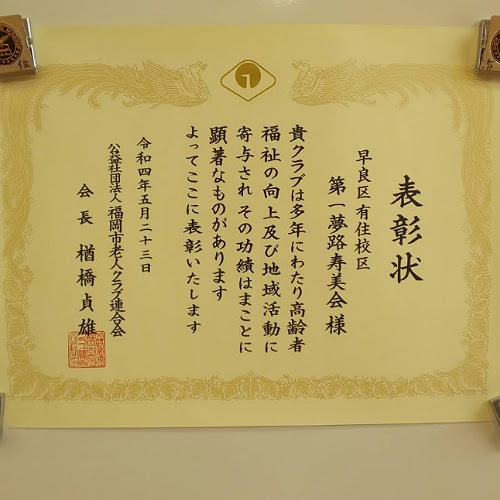 表彰状
早良区有住校区
第一夢路寿美会様
貴クラブは多年にわたり高齢者
福祉の向上及び地域活動に
寄与され その功績はまことに
顕著なものがあります
よってここに表彰いたします
令和四年五月二十三日
公益社団法人 福岡市老人クラブ連合会
会長 楢橋貞雄